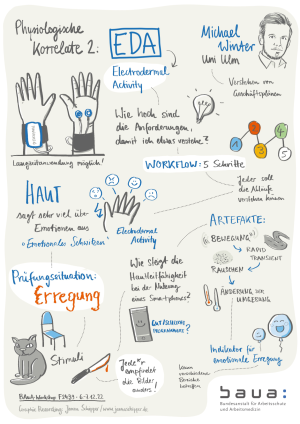 Physiologische
Korrelate 2:
EDA
Electrodermal
Activity
Michael
Winter
Uni Ulm
Verstehen von
Geschäftsplänen
Wie hoch sind
die Anforderungen,
damit ich etwas verstehe?
1
2
3
4
5
Langzeitanwendung möglich!
WORKFLOW: 5 Schritte
Jeder soll
die Abläufe
verstehen können
HAUT
sagt sehr viel über
Emotionen aus
"Emotionales Schwitzen"
Electrodermal
Activity
ARTEFAKTE:
BEWEGUNG
RAPID
TRANSIENT
RAUSCHEN
ÄNDERUNG DER
UMGEBUNG
Prüfungssituation:
Erregung
Wie steigt die
Hautleitfähigkeit
bei der Nutzung
eines Smartphones?
GUT
PROGRAMMIERT?
Indikator für
emotionale Erregung
Stimuli
Jede*r
empfindet
die Bilder
anders!
kann
verschiedene
Bereiche
baua:
Bundesanstalt für Arbeitsschutz
und Arbeitsmedizin
BAuA-Workshop F2439 - 6-7.12.22
Graphic Recording: Janna Schoppe / www.jannaschoppe.de